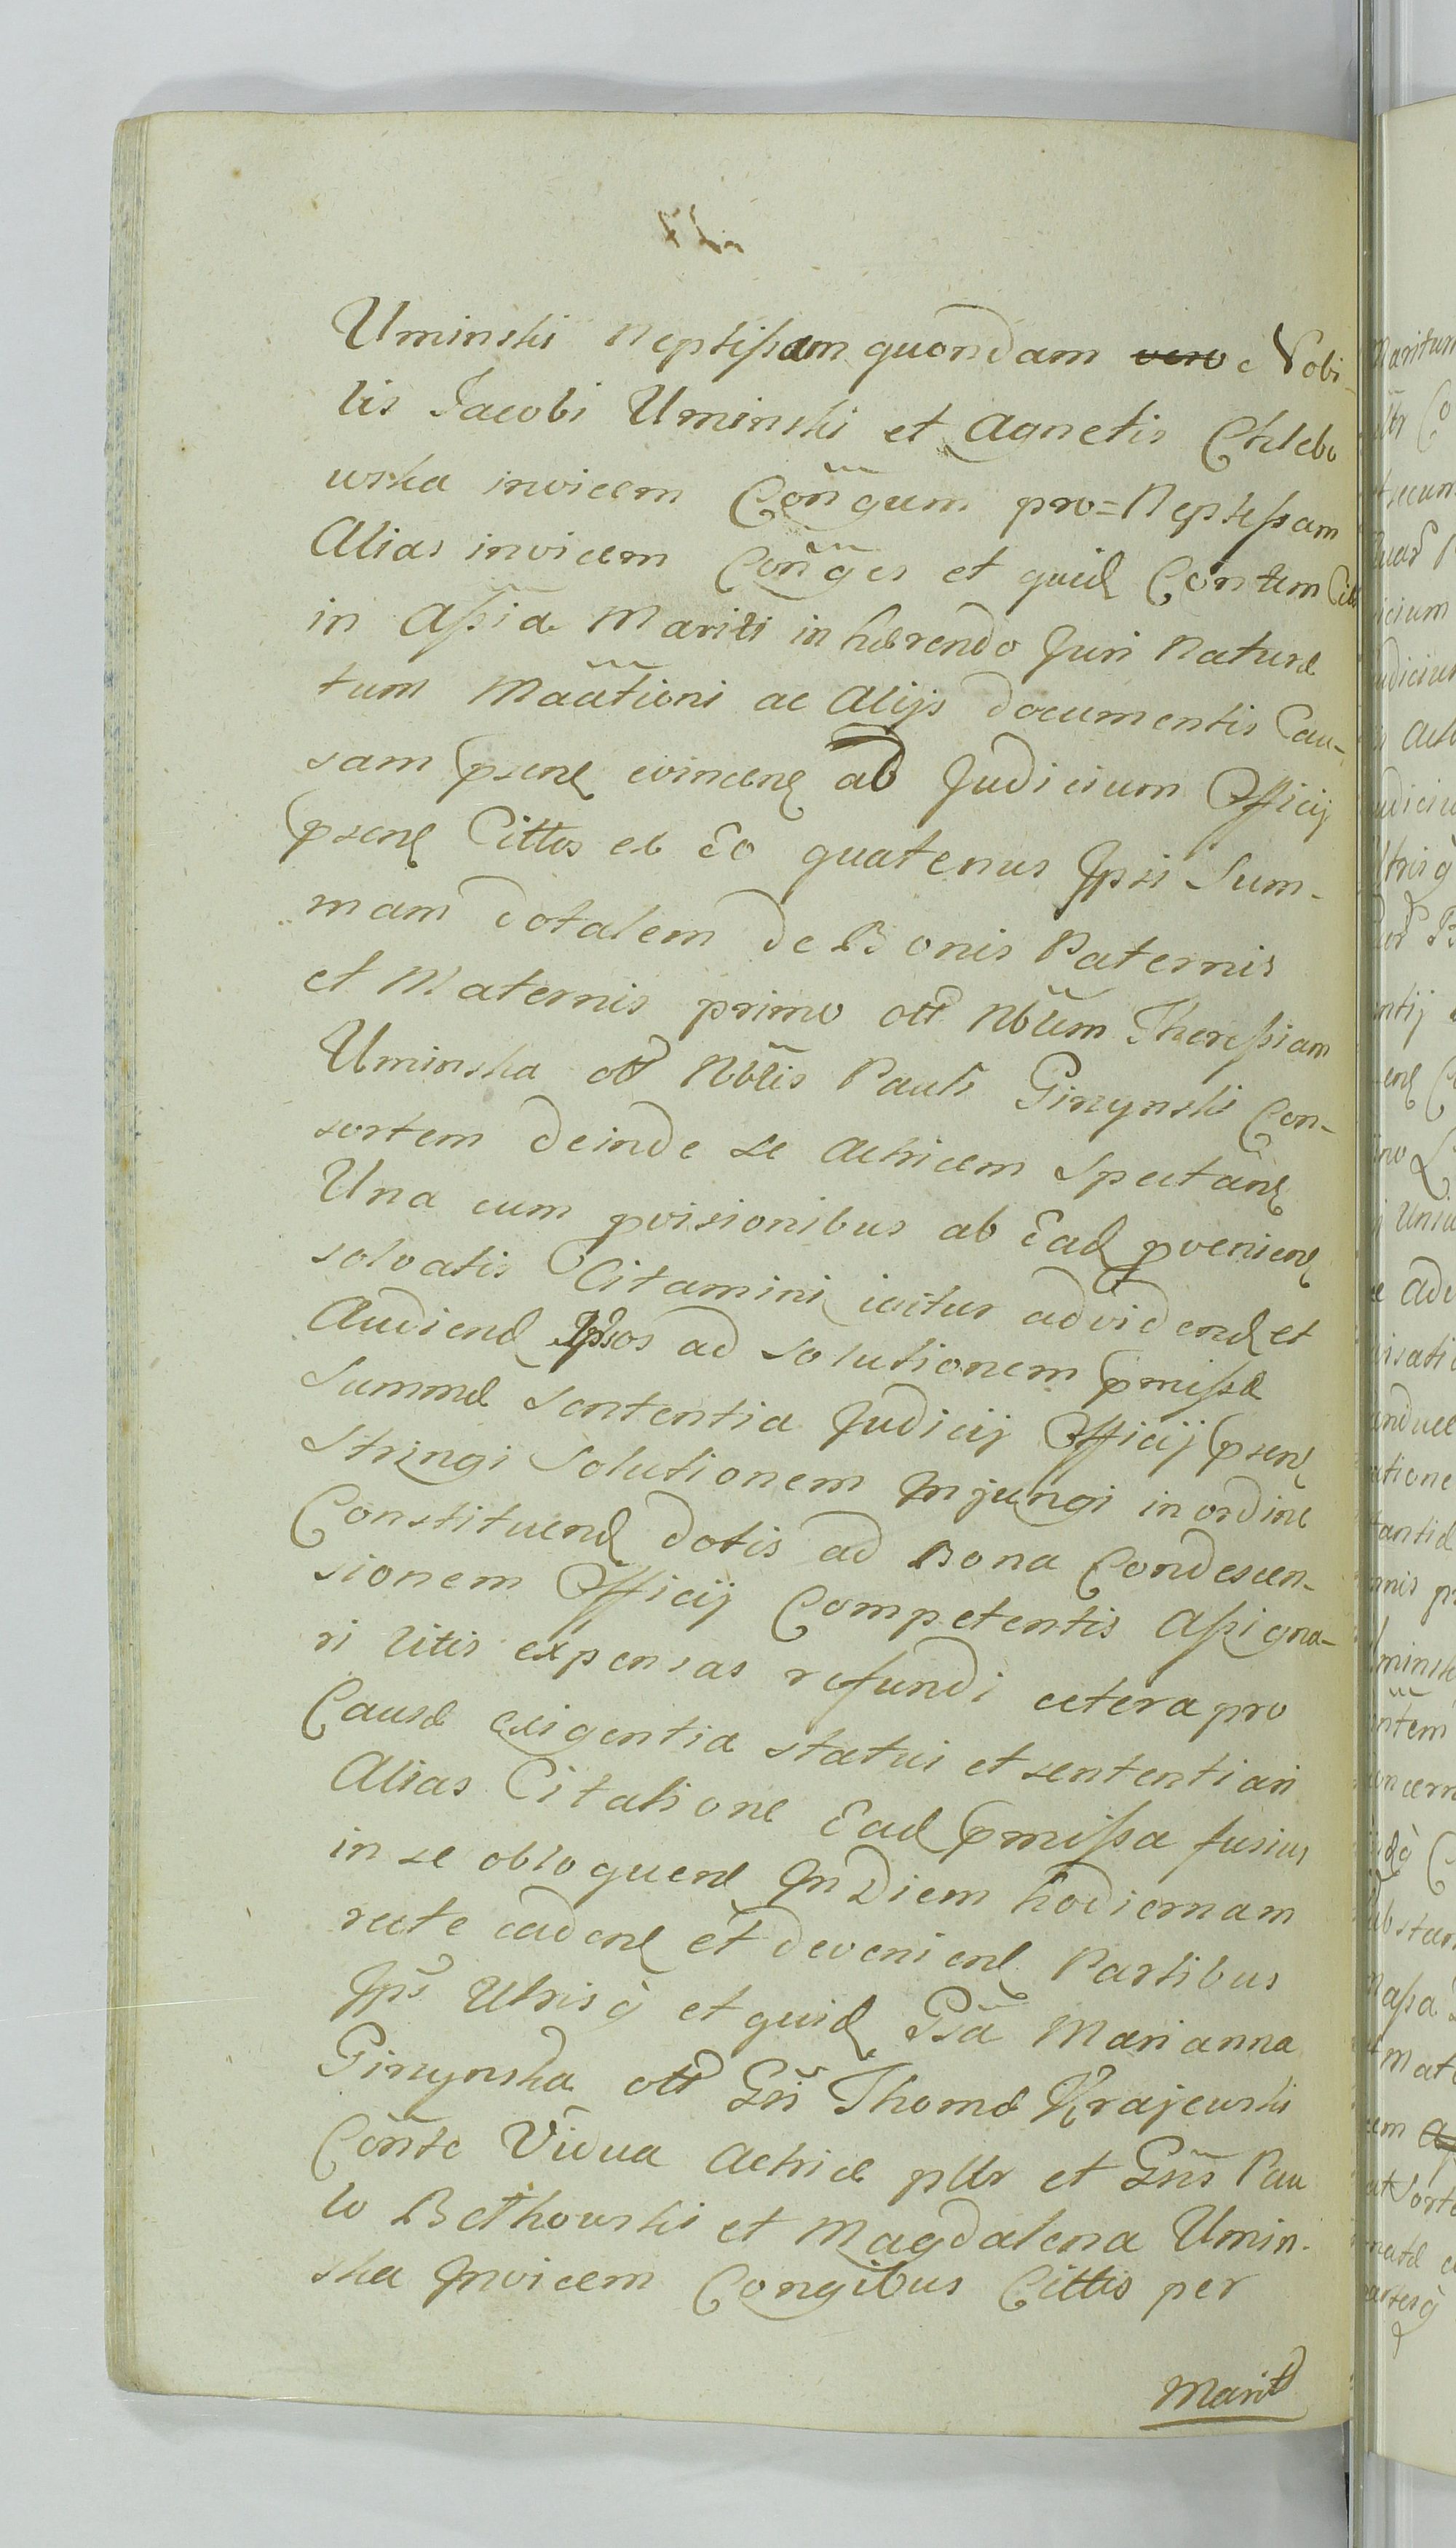 Uminski Neptißam quondam vero e Nobi-
lis Jacobi Uminski et Agnetis Chlebo
wska invicem Con̄gum pro=Neptißam
Alias invicem Con̄ges et quid Contem
in Aßia Mariti inhærendo Juri Naturæ
tum Māātioni ac Alijs documentis Cau-
sam psen evincen ab Judicium Officij
psen Cittos ex Eo quatenus Ipsi Sum-
mam dotalem de Bonis Paternis
et Maternis primo ott Nblem Thereßiam
Uminska ott Nblis Pauli Ginynski Con-
sortem deinde se Actricem Spectan
Una cum pvisionibus ab Ead pvenien
solvatis Citamini icitur ad vidend et
Audiend Ipsos ad solutionem pmißæ
Summæ Sententia Judicij Officij psen
Stringi Solutionem Injungi in ordine
Constituend dotis ad Bona Condescen-
sionem Officij Competentis Aßigna-
ri litis expensas refundi cetera pro
Causæ exigentia statui et sententiari
Alias Citatione Ead pmißa fusius
in se obloquen In Diem hodiernam
recte caden et devenien Partibus
Ips Utrisq et quid Gsa Marianna
Ginynska ott Gsi Thomæ Krajewski
Conse Vidua Actrice pltr et Gsis Pau
lo Bethowski et Magdalena Umin-
ska Invicem Congibus Cittis per
Marit